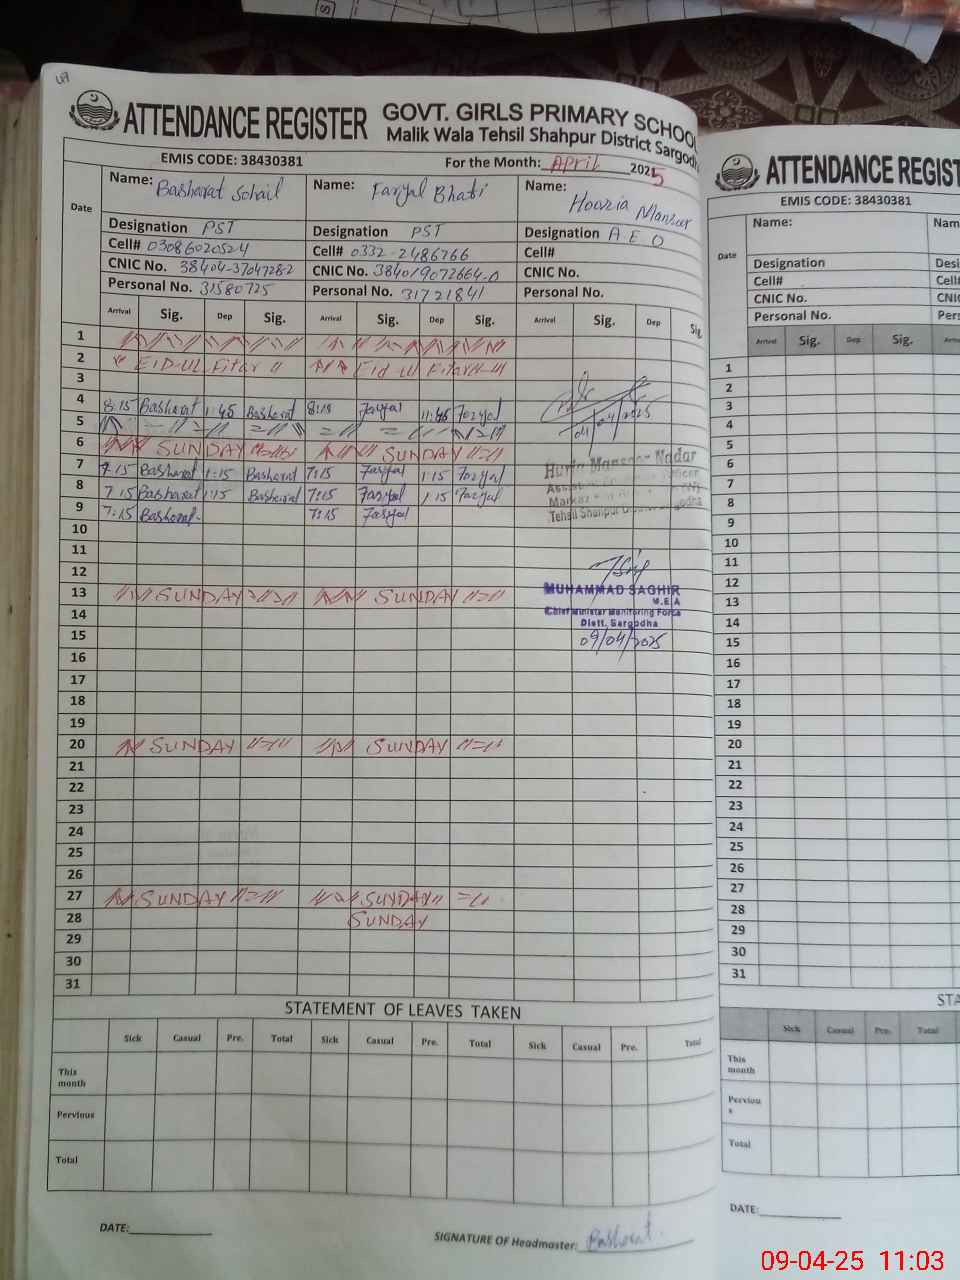 ATTENDANCE REGISTER GOVT. GIRLS PRIMARY SCHOOL
Malik Wala Tehsil Shahpur District Sargodh
EMIS CODE: 38430381 For the Month: April 2025
Date
Name: Basharat Sohail Name: Faryal Bhatti Name: Hooria Manzoor
Designation PST Designation PST Designation A.E.O
Cell# 03086020524 Cell# 0332-2486766 Cell#
CNIC No. 38404-3704728-2 CNIC No. 384019072664-0 CNIC No.
Personal No. 31580725 Personal No. 31721841 Personal No.
Arrival Sig. Dep Sig. Arrival Sig. Dep Sig. Arrival Sig. Dep Sig.
1
2 EID-UL Fitar Eid-ul Fitar
3
4 8:15 Basharat 11:45 Basharat 8:15 Faryal 11:45 Faryal 04/04/2025
5
6 SUNDAY SUNDAY
7 7:15 Basharat 1:15 Basharat 7:15 Faryal 1:15 Faryal
8 7:15 Basharat 1:15 Basharat 7:15 Faryal 1:15 Faryal
9 7:15 Basharat 7:15 Faryal
Tehsil Shahpur District Sargodha
10
11
12
13 SUNDAY SUNDAY
MUHAMMAD SAGHIR
M.E.A
Chief Minister Monitoring Force
Distt. Sargodha
09/04/2025
14
15
16
17
18
19
20 SUNDAY SUNDAY
21
22
23
24
25
26
27 SUNDAY SUNDAY
28 SUNDAY
29
30
31
STATEMENT OF LEAVES TAKEN
Sick Casual Pre. Total Sick Casual Pre. Total Sick Casual Pre. Total
This month
Pervious
Total
DATE: SIGNATURE OF Headmaster: Basharat
ATTENDANCE REGIST
EMIS CODE: 38430381
Date
Name: Nam
Designation Desi
Cell# Cell
CNIC No. CNI
Personal No. Pers
Arrival Sig. Dep Sig.
1
2
3
4
5
6
7
8
9
10
11
12
13
14
15
16
17
18
19
20
21
22
23
24
25
26
27
28
29
30
31
STA
Sick Casual Pre. Total
This month
Perviou
s
Total
DATE:
09-04-25 11:03